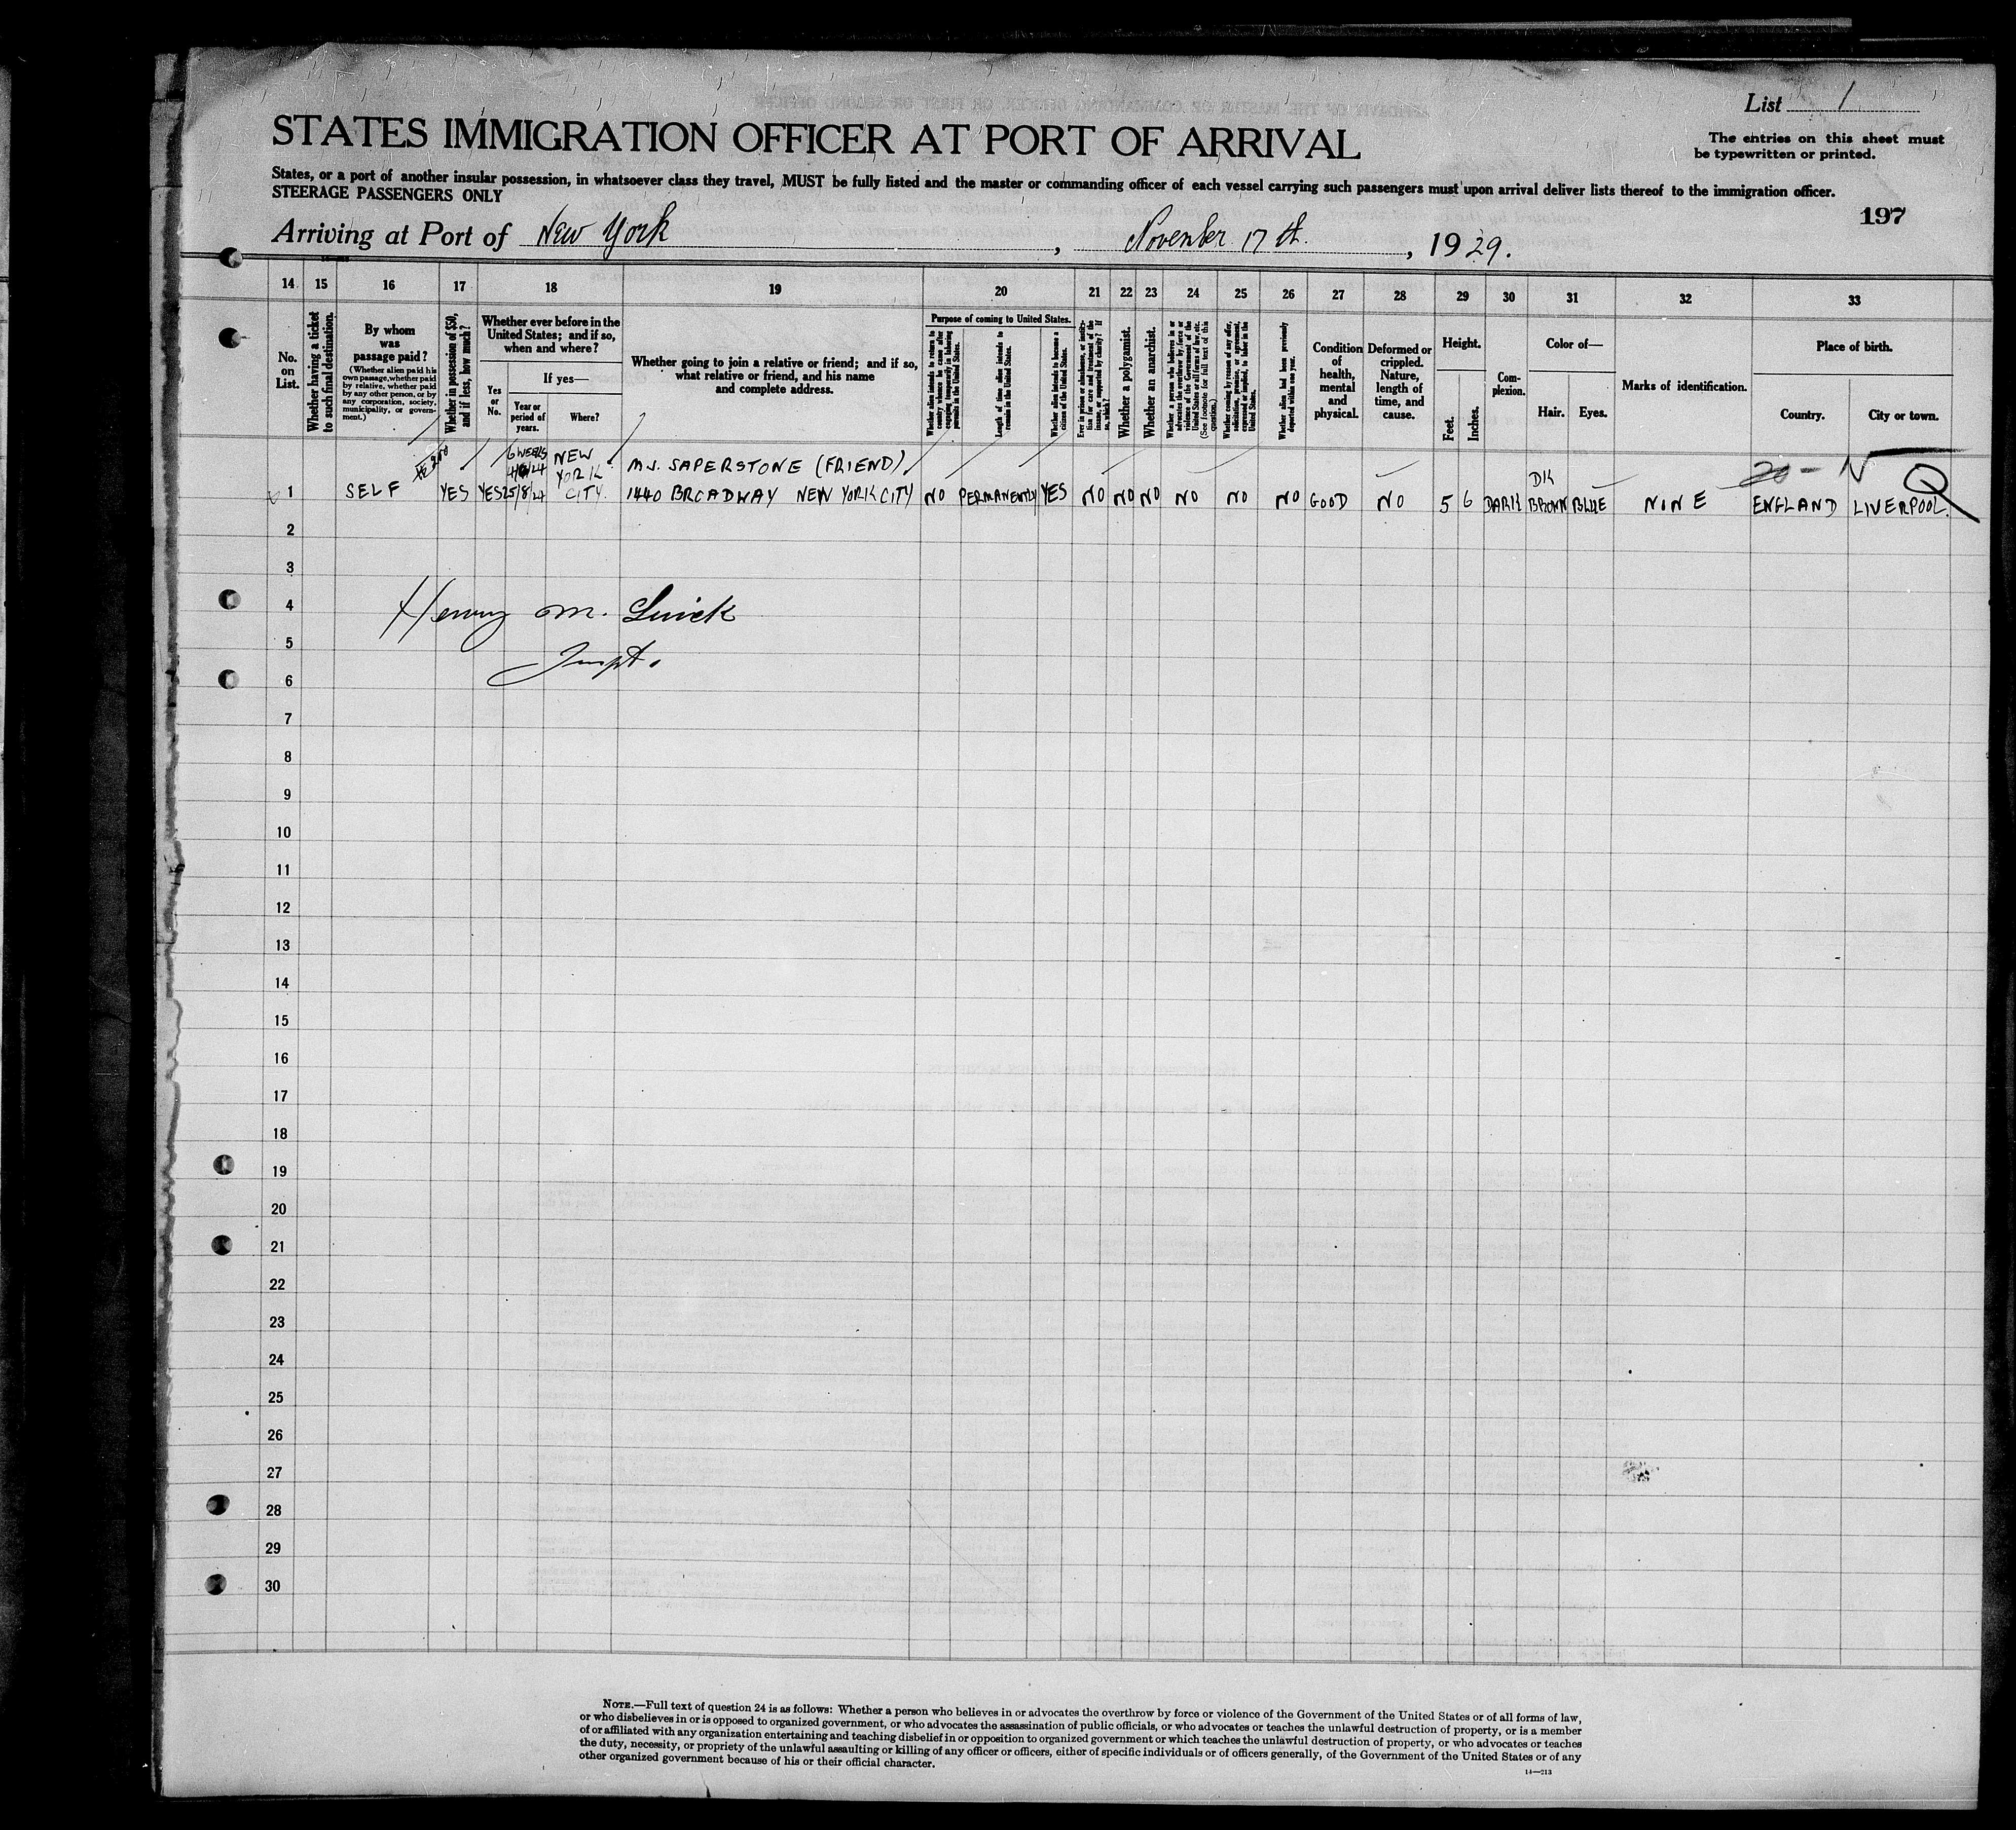 List 1
STATES IMMIGRATION OFFICER AT PORT OF ARRIVAL
The entries on this sheet must
be typewritten or printed.
States, or a port of another insular possession, in whatsoever class they travel, MUST be fully listed and the master or commanding officer of each vessel carrying such passengers must upon arrival deliver lists thereof to the immigration officer.
STEERAGE PASSENGERS ONLY
197
Arriving at Port of New York, November 17th, 1929.
14 15 16 17 18 19 20 21 22 23 24 25 26 27 28 29 30 31 32 33
No.
on
List.
Whether having a ticket
to such final destination.
By whom
was
passage paid?
(Whether alien paid his
own passage, whether paid
by relative, whether paid
by any other person, or by
any corporation, society,
municipality, or govern-
ment.)
Whether in possession of $50,
and if less, how much?
Whether ever before in the
United States; and if so,
when and where?
Yes
or
No.
If yes—
Year or
period of
years.
Where?
Whether going to join a relative or friend; and if so,
what relative or friend, and his name
and complete address.
Purpose of coming to United States.
Whether alien intends to return to
country whence he came after
engaging temporarily in laboring
pursuits in the United States.
Length of time alien intends to
remain in the United States.
Whether alien intends to become a
citizen of the United States.
Ever in prison or almshouse, or institu-
tion for care and treatment of the
insane, or supported by charity? If
so, which?
Whether a polygamist.
Whether an anarchist.
Whether a person who believes in or
advocates the overthrow by force or
violence of the Government of the
United States or all forms of law, etc.
(See footnote for full text of this
question.)
Whether coming by reason of any offer,
solicitation, promise, or agreement,
expressed or implied, to labor in the
United States.
Whether alien had been previously
deported within one year.
Condition
of
health,
mental
and
physical.
Deformed or
crippled.
Nature,
length of
time, and
cause.
Height.
Feet.
Inches.
Com-
plexion.
Color of—
Hair.
Eyes.
Marks of identification.
Place of birth.
Country.
City or town.
6 WEEKS NEW
YORK M.J. SAPERSTONE (FRIEND) DK N Q
1 SELF YES YES 25/8/24 CITY. 1440 BROADWAY NEW YORK CITY NO PERMANENTLY YES NO NO NO NO NO NO GOOD NO 5 6 DARK BROWN BLUE NONE ENGLAND LIVERPOOL.
2
3
4
Henry M.
5
Inspt.
6
7
8
9
10
11
12
13
14
15
16
17
18
19
20
21
22
23
24
25
26
27
28
29
30
NOTE.—Full text of question 24 is as follows: Whether a person who believes in or advocates the overthrow by force or violence of the Government of the United States or of all forms of law,
or who disbelieves in or is opposed to organized government, or who advocates the assassination of public officials, or who advocates or teaches the unlawful destruction of property, or is a member
of or affiliated with any organization entertaining and teaching disbelief in or opposition to organized government or which teaches the unlawful destruction of property, or who advocates or teaches
the duty, necessity, or propriety of the unlawful assaulting or killing of any officer or officers, either of specific individuals or of officers generally, of the Government of the United States or of any
other organized government because of his or their official character.
14—213